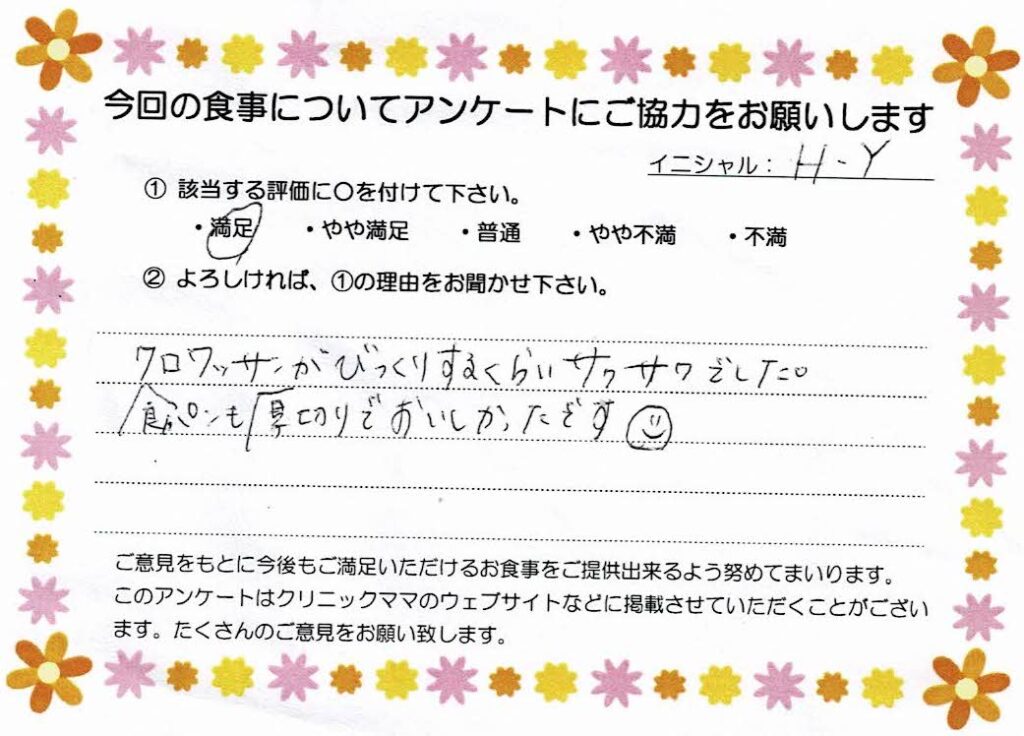 今回の食事についてアンケートにご協力をお願いします
イニシャル：H-Y
① 該当する評価に〇を付けて下さい。
・満足 ・やや満足 ・普通 ・やや不満 ・不満
② よろしければ、①の理由をお聞かせ下さい。
クロワッサンがびっくりするくらいサクサクでした。
食パンも厚切りでおいしかったです
ご意見をもとに今後もご満足いただけるお食事をご提供出来るよう努めてまいります。
このアンケートはクリニックママのウェブサイトなどに掲載させていただくことがござい
ます。たくさんのご意見をお願い致します。